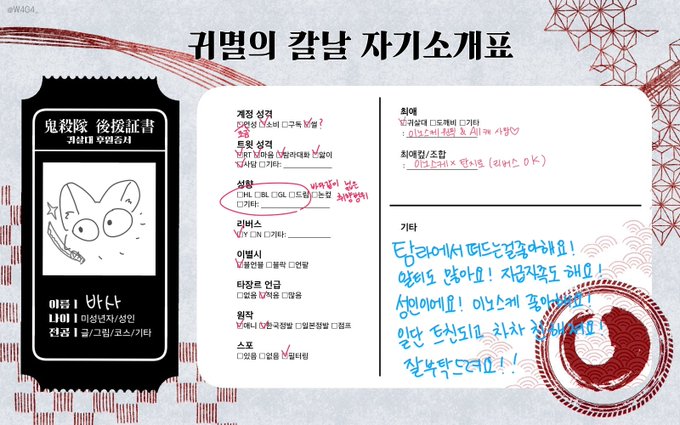 @W4G4_
귀멸의 칼날 자기소개표
鬼殺隊 後援証書
귀살대 후원증서
이름 | 바사
나이 | 미성년자/성인
전공 | 글/그림/코스/기타
계정 성격
□연성 □소비 □구독 □썰 ?
조금
트윗 성격
□RT □마음 □탐라대화 □앓이
□사담 □기타:
성향
□HL □BL □GL □드림 □논컾
□기타:
바다같이 넓은
취향범위
리버스
□Y □N □기타:
이별시
□블언블 □블락 □언팔
타장르 언급
□없음 □적음 □많음
원작
□애니 □한국정발 □일본정발 □점프
스포
□있음 □없음 □필터링
최애
□귀살대 □도깨비 □기타
: 이노스케 원픽 & All캐 사랑♡
최애컾/조합
: 이노스케 × 탄지로 (리버스 OK)
기타
탐라에서 떠드는걸좋아해요!
알티도 많아요! 지급직족도 해요!
성인이에요! 이노스케 좋아해요!
일단 트친되고 차차 친해져요!
잘부탁드려요!!